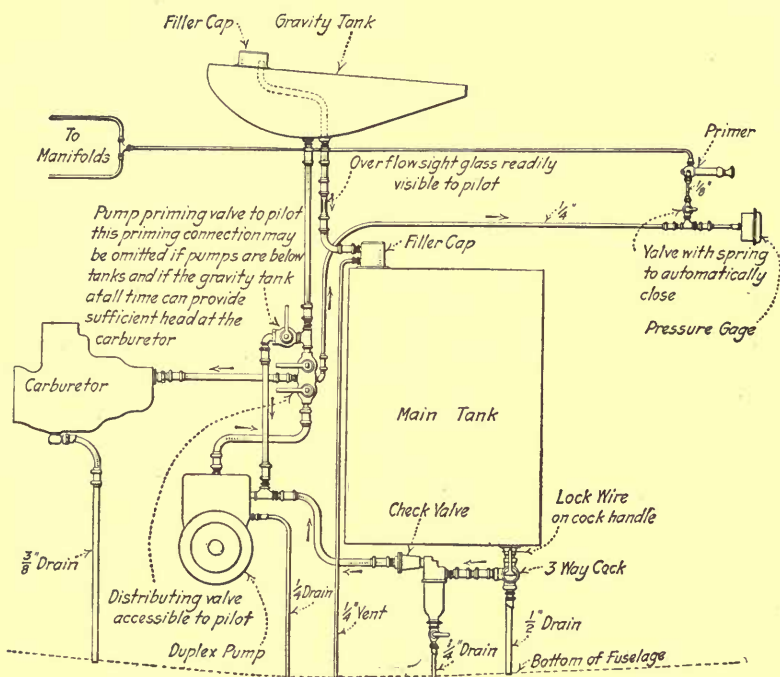 Filler Cap
Gravity Tank
To
Manifolds
Primer
1/8"
Overflow sight glass readily
visible to pilot
1/4"
Pump priming valve to pilot
this priming connection may
be omitted if pumps are below
tanks and if the gravity tank
at all time can provide
sufficient head at the
carburetor
Filler Cap
Valve with spring
to automatically
close
Pressure Gage
Carburetor
Main Tank
Check Valve
Lock Wire
on cock handle
3 Way Cock
3/8" Drain
Distributing valve
accessible to pilot
Duplex Pump
1/4 Drain
1/4" Vent
1/4" Drain
1/2" Drain
Bottom of Fuselage